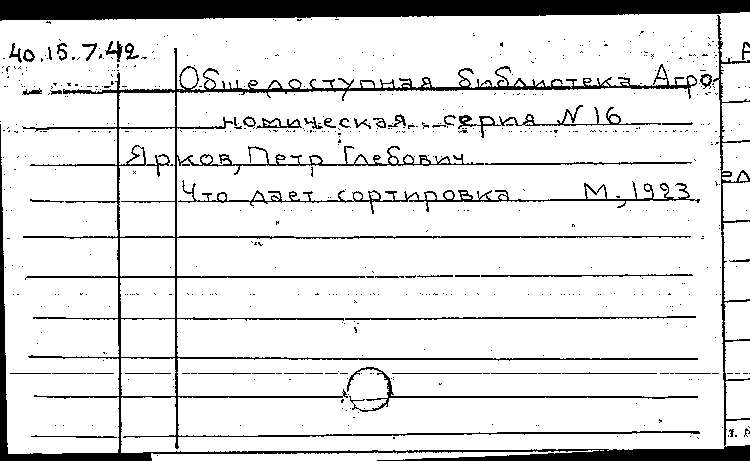 40.15.7.42
Общедоступная библиотека Агро-
номическая серия N 16
Ярков, Петр Глебович
Что дает сортировка М., 1923.